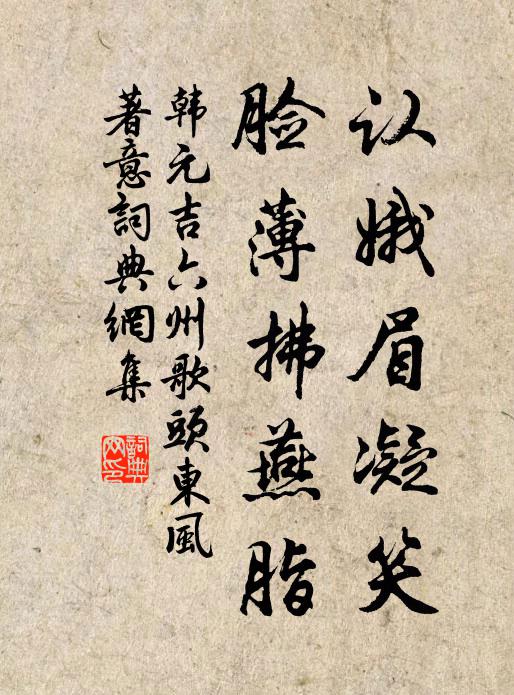 认娥眉凝笑
脸薄拂燕脂
韩元吉六州歌头東風
著意詞典網集
詞典网印